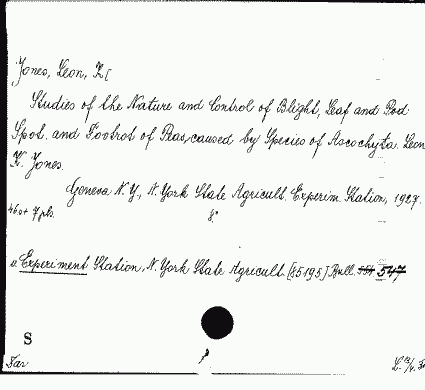 Jones, Leon, K[
Studies of the Nature and Control of Blight, Leaf and Pod
Spot and Footrot of Peas, caused by Species of Ascochyta. Leon
K. Jones.
Geneva N.Y., N. York State Agricult. Experim. Station, 1927.
46 s + 7 pls. 8°
a Experiment Station, N. York State Agricult. [85195] Bull. 547
S
Far